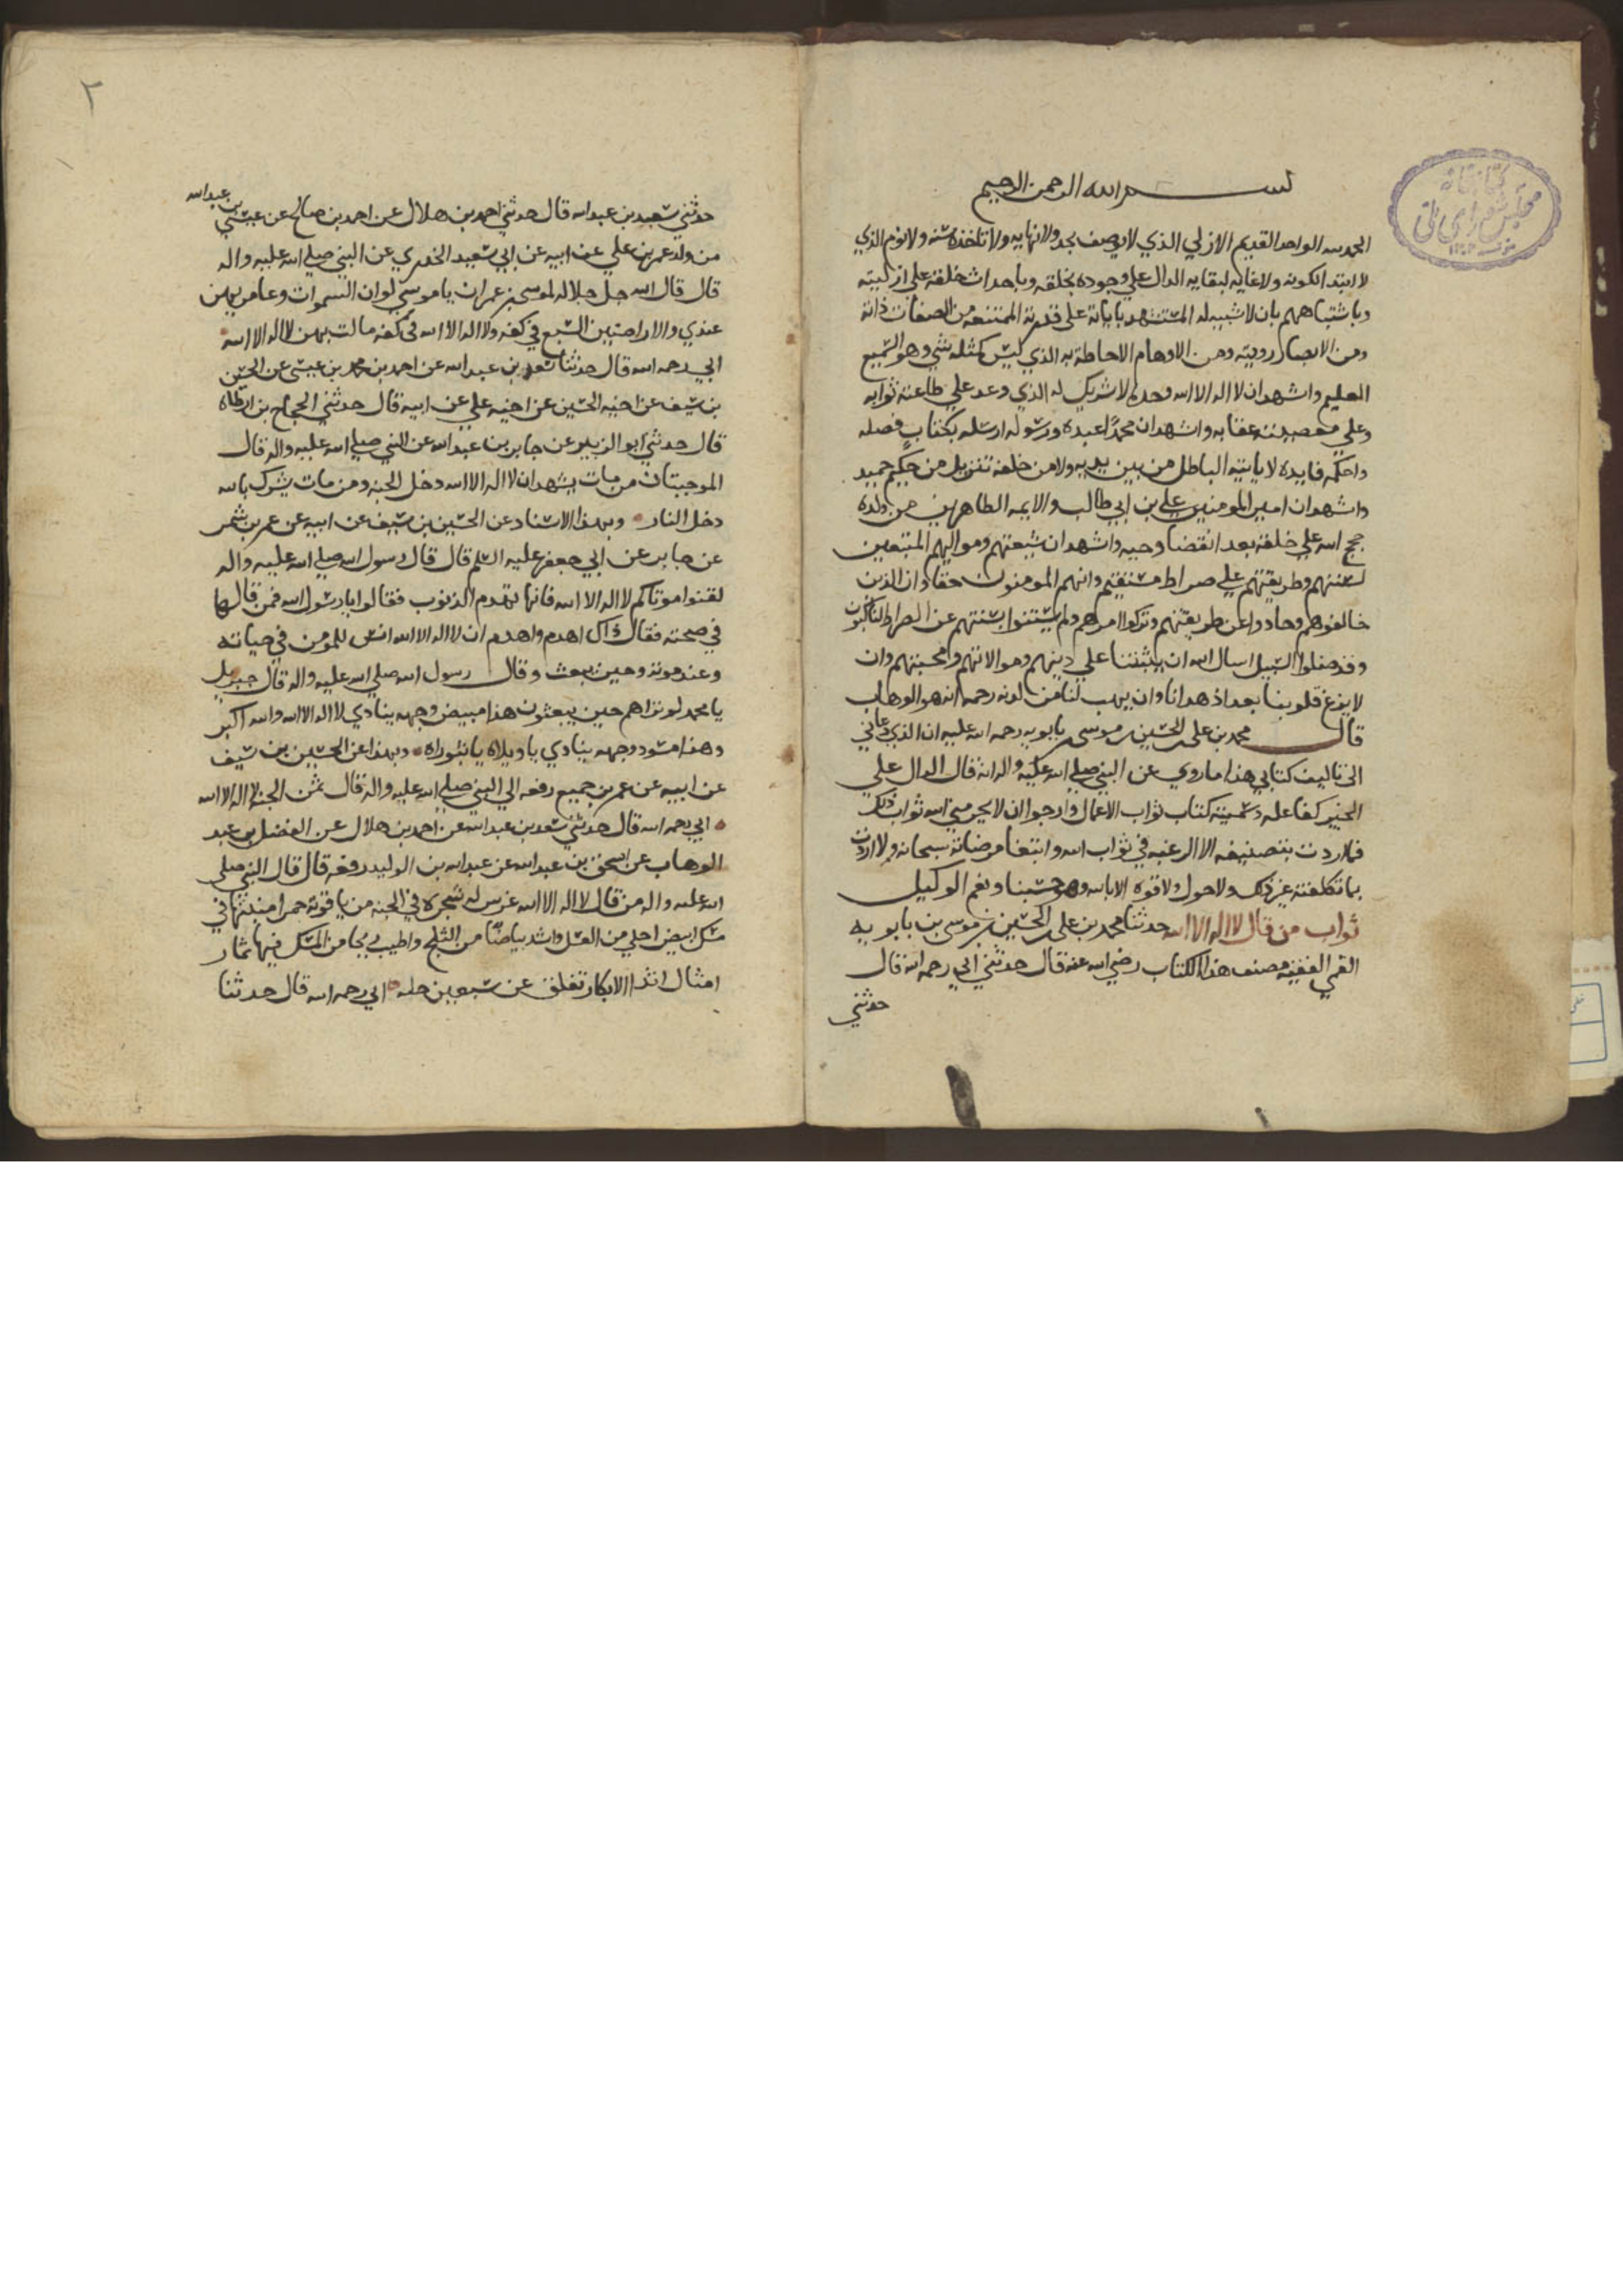 بسم الله الرحمن الرحيم
الحمد لله الواحد القديم الازلي الذي لا يوصف بحد ولا نهايه ولا تاخذه سنه ولا نوم الذي
لا ابتدا لكونه ولا غايه لبقايه الدال علي وجوده بخلقه وباحداث خلقه علي ازليته
وباشتباههم بان لا شبيه له المستشهد باياته على قدرته الممتنعه من الصفات ذاته
ومن الابصار رويته ومن الاوهام الاحاطة به الذي ليس كمثله شي وهو السميع
العليم واشهد ان لا اله الا الله وحده لا شريك له الذي وعد علي طاعته ثوابه
وعلي معصيته عقابه واشهد ان محمدا عبده ورسوله ارسله بكتاب فصله
واحكمه فايده لا ياتيه الباطل من بين يديه ولا من خلفه تنزيل من حكيم حميد
واشهد ان امير المومنين علي بن ابي طالب والايمه الطاهرين من ولده
حجج الله علي خلقه بعد انقضا وحيه واشهد ان شيعتهم ومواليهم المتبعين
لسنتهم وطريقتهم علي صراط مستقيم وانهم المومنون حقا وان الذين
خالفوهم وحادوا عن طريقتهم وتركوا امرهم ولم يستنوا بسنتهم عن الصراط لناكبون
وقد ضلوا السبيل اسال الله ان يثبتنا علي دينهم وموالاتهم ومحبتهم وان
لا يزغ قلوبنا بعد اذ هدانا وان يهب لنا من لدنه رحمه انه هو الوهاب
قال محمد بن علي بن الحسين بن موسى بن بابويه رحمه الله عليه ان الذي دعاني
الى تاليف كتابي هذا ما روي عن النبي صلي الله عليه واله انه قال الدال علي
الخير كفاعله وسميته كتاب ثواب الاعمال وارجو ان لا يحرمني الله ثواب ذلك
فما اردت بتصنيفه الا الرغبه في ثواب الله وابتغا مرضاته سبحانه ولا اردت
بما تكلفته غير ذلك ولا حول ولا قوه الا بالله وهو حسبنا ونعم الوكيل
ثواب من قال لا اله الا الله حدثنا محمد بن علي بن الحسين بن موسى بن بابويه
القمي الفقيه مصنف هذا الكتاب رضي الله عنه قال حدثني ابي رحمه الله قال
حدثني
٢
حدثني سعيد بن عبد الله قال حدثني احمد بن هلال عن احمد بن صالح عن عيسي بن عبد الله
من ولد عمر بن علي عن ابيه عن ابي سعيد الخدري عن النبي صلي الله عليه واله
قال قال الله جل جلاله لموسى بن عمران يا موسي لو ان السموات وعامريهن
عندي والارضين السبع في كفه ولا اله الا الله في كفه مالت بهن لا اله الا الله
ابي رحمه الله قال حدثنا سعد بن عبد الله عن احمد بن محمد بن عيسى عن الحسين
بن سيف عن اخيه الحسين عن اخيه علي عن ابيه قال حدثني الحجاج بن ارطاه
قال حدثني ابو الزبير عن جابر بن عبد الله عن النبي صلي الله عليه واله قال
الموجبتان من مات يشهد ان لا اله الا الله دخل الجنه ومن مات يشرك بالله
دخل النار وبهذا الاسناد عن الحسين بن سيف عن ابيه عن عمر بن شمر
عن جابر عن ابي جعفر عليه السلم قال قال رسول الله صلي الله عليه واله
لقنوا موتاكم لا اله الا الله فانها تهدم الذنوب فقالوا يا رسول الله فمن قالها
في صحته فقال ذاك اهدم واهدم ان لا اله الا الله انس للمومن في حياته
وعند موته وحين يبعث وقال رسول الله صلي الله عليه واله قال جبريل
يا محمد لو تراهم حين يبعثون هذا مبيض وجهه ينادي لا اله الا الله والله اكبر
وهذا مسود وجهه ينادي يا ويلاه يا ثبوراه وبهذا عن الحسين بن سيف
عن ابيه عن عمر بن جميع رفعه الي النبي صلي الله عليه واله قال ثمن الجنه لا اله الا الله
ابي رحمه الله قال حدثني سعد بن عبد الله عن احمد بن هلال عن الفضل بن عبد
الوهاب عن اسحق بن عبد الله عن عبد الله بن الوليد رفعه قال قال النبي صلي
الله عليه واله من قال لا اله الا الله غرس له شجره في الجنه من ياقوته حمرا منبتها في
مسك ابيض احلي من العسل واشد بياضا من الثلج واطيب ريحا من المسك فيها ثمار
امثال اثدا الابكار تفلق عن سبعين حله ابي رحمه الله قال حدثنا